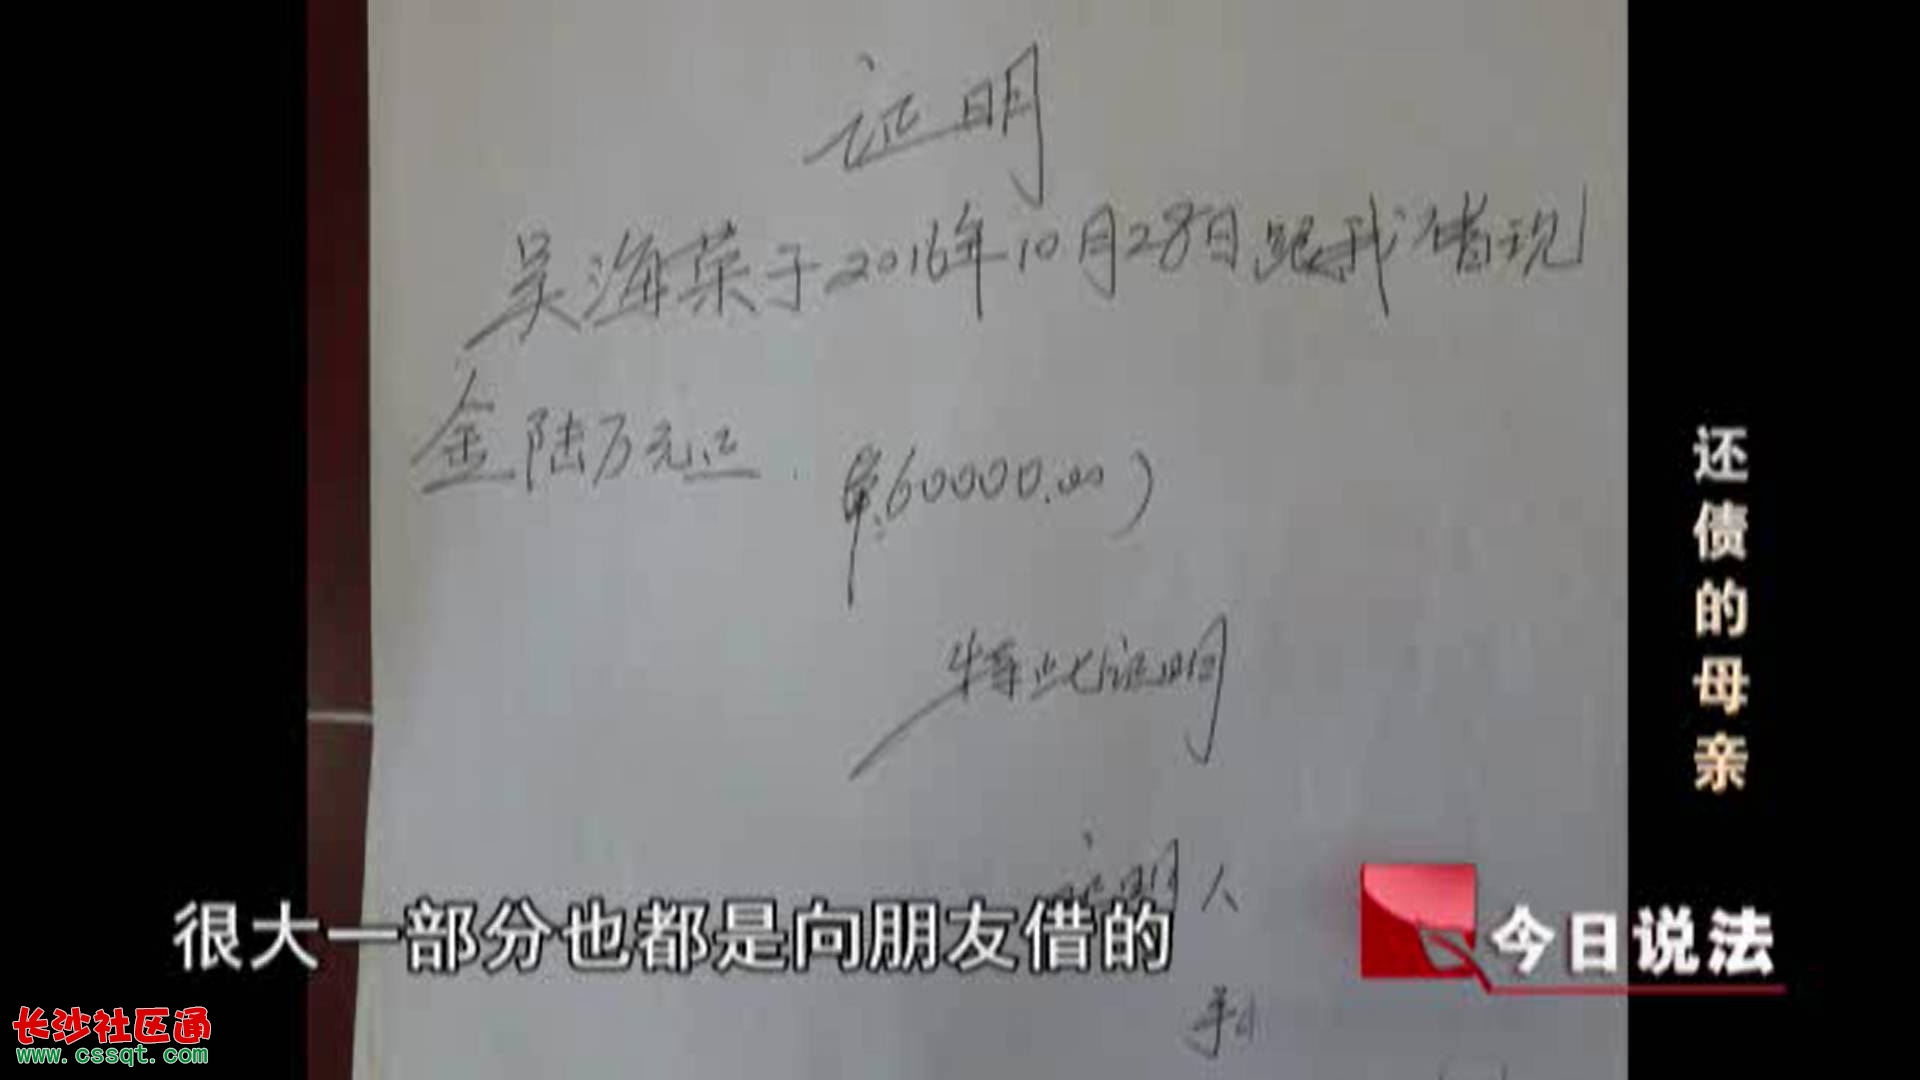 证明
吴海荣于2016年10月28日跟我借现
金陆万元正.
60000.00)
特此证明
证明人
还债的母亲
很大一部分也都是向朋友借的
今日说法
长沙社区通
www.cssqt.com